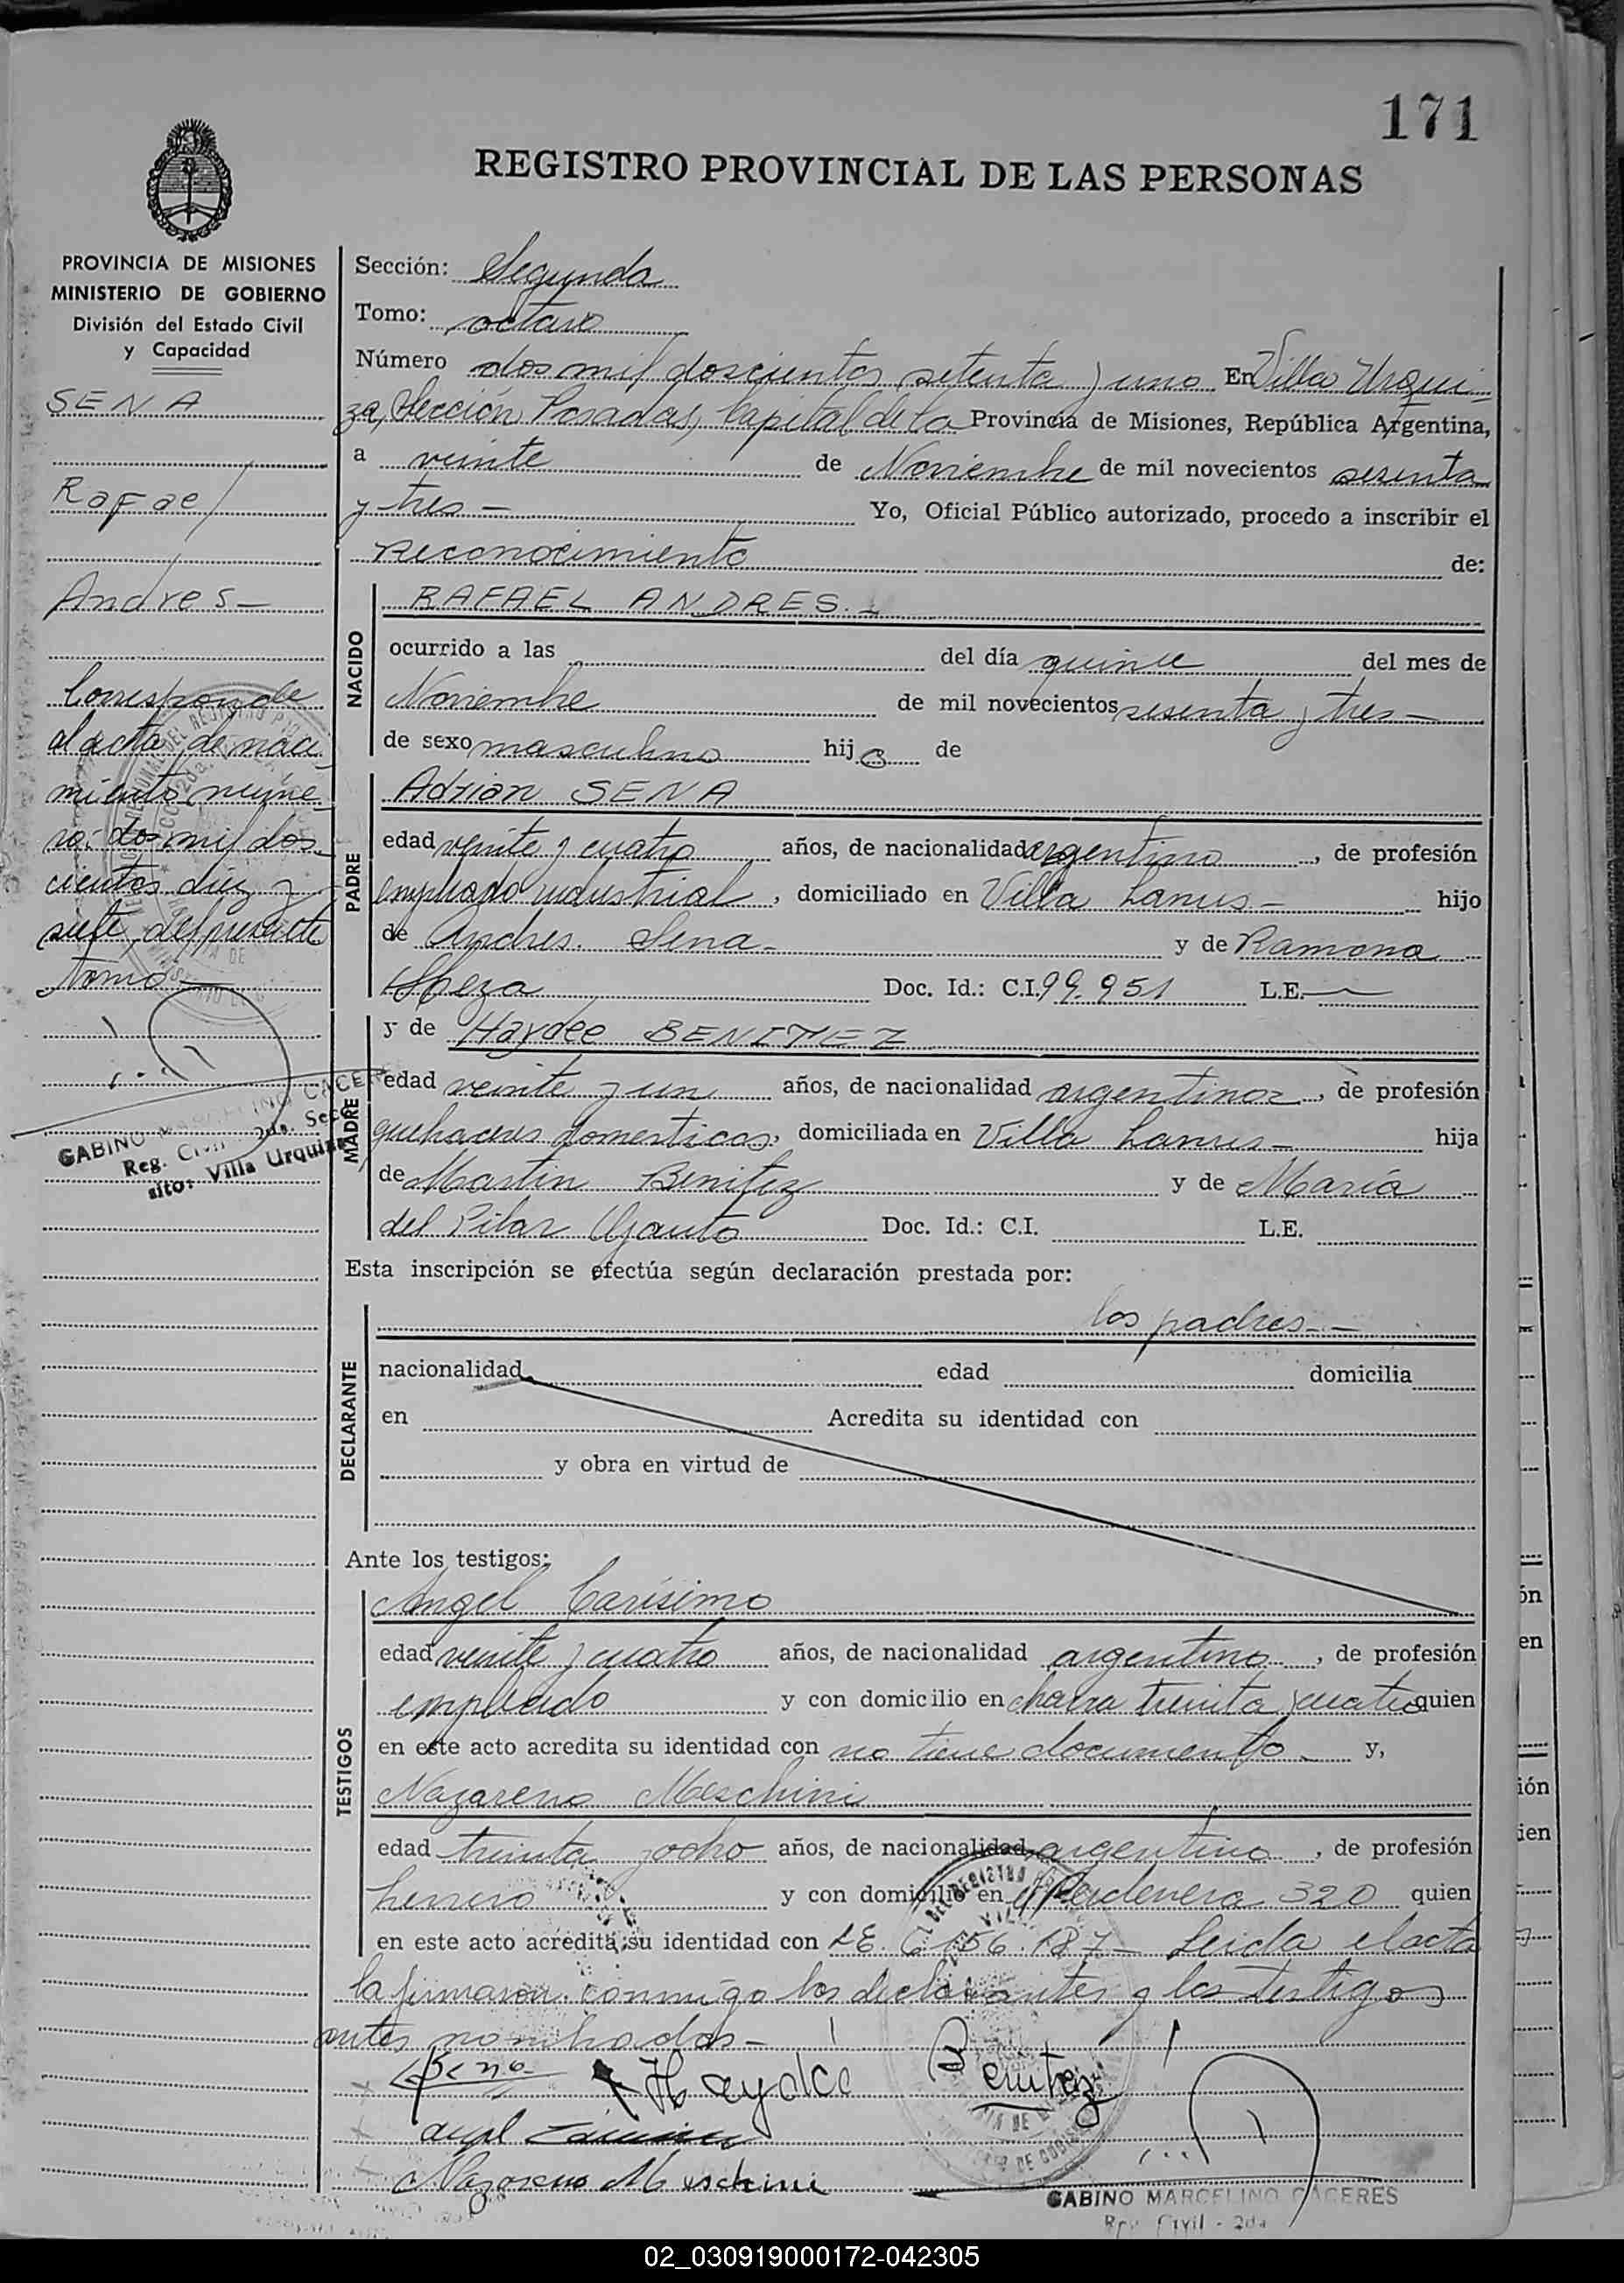 171
REGISTRO PROVINCIAL DE LAS PERSONAS
PROVINCIA DE MISIONES
MINISTERIO DE GOBIERNO
División del Estado Civil
y Capacidad
SENA
Rafael
Andres-
Corresponde
al acta de naci
miento núme
ro: dos mil dos
cientos diez y
siete, del presente
Tomo-
GABINO MARCELINO CACERES
Reg. Civil 2da. Secc.
Villa Urquiza
Sección: Segunda
Tomo: octavo
Número dos mil doscientos setenta y uno En Villa Urqui-
za, Sección Posadas, Capital de la Provincia de Misiones, República Argentina,
a veinte de Noviembre de mil novecientos sesenta
y tres - Yo, Oficial Público autorizado, procedo a inscribir el
reconocimiento de:
NACIDO
RAFAEL ANDRES.-
ocurrido a las del día quince del mes de
Noviembre de mil novecientos sesenta y tres-
de sexo masculino hijo de
PADRE
Adrian SENA
edad veinte y cuatro años, de nacionalidad argentino, de profesión
empleado industrial, domiciliado en Villa Lanus- hijo
de Andres Sena- y de Ramona
Doc. Id.: C.I. 99.951 L.E. —
MADRE
y de Haydee BENITEZ
edad veinte y un años, de nacionalidad argentina, de profesión
quehaceres domesticos, domiciliada en Villa Lanus- hija
de Martin Benitez y de María
del Pilar Doc. Id.: C.I. L.E.
Esta inscripción se efectúa según declaración prestada por:
DECLARANTE
los padres.-
nacionalidad edad domicilia
en Acredita su identidad con
y obra en virtud de
Ante los testigos:
TESTIGOS
Angel Carísimo
edad veinte y cuatro años, de nacionalidad argentino, de profesión
empleado y con domicilio en chacra treinta y cuatro quien
en este acto acredita su identidad con no tiene documento y,
Nazareno Meschini
edad treinta y ocho años, de nacionalidad argentino, de profesión
herrero y con domicilio en 320 quien
en este acto acredita su identidad con LE. 6156.187- Leida el acta
la firmaron conmigo los declarantes y los testigos
antes nombrados-
Sena Haydee Benitez
Angel
Nazareno Meschini
GABINO MARCELINO CACERES
Reg. Civil - 2da
02_030919000172-042305